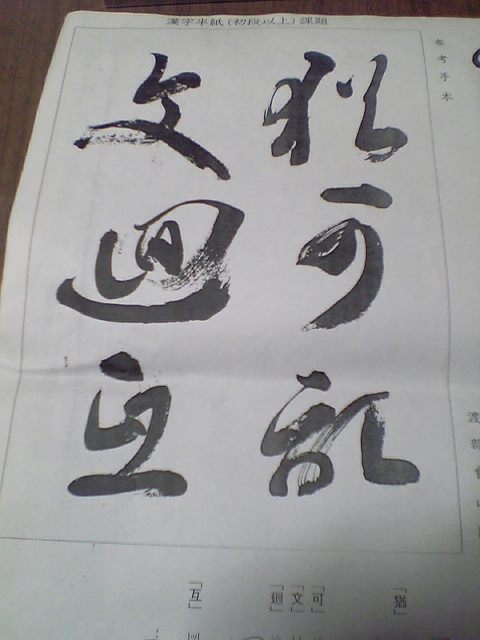 漢字半紙(初段以上)課題
参考手本
猶可乱
文廻互
「猶」
「可」
「文」
「廻」
「互」